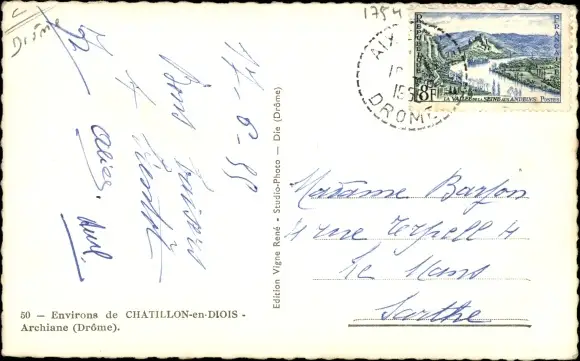 1754
Drôme
17-8-55
Bons baisers
Madame Barjon
4 rue
Le Mans
Sarthe
RÉPUBLIQUE FRANÇAISE
8F
LA VALLÉE DE LA SEINE AUX ANDELYS POSTES
AIX
DROME
Edition Vigne René - Studio-Photo - Die (Drôme)
50 — Environs de CHATILLON-en-DIOIS -
Archiane (Drôme).